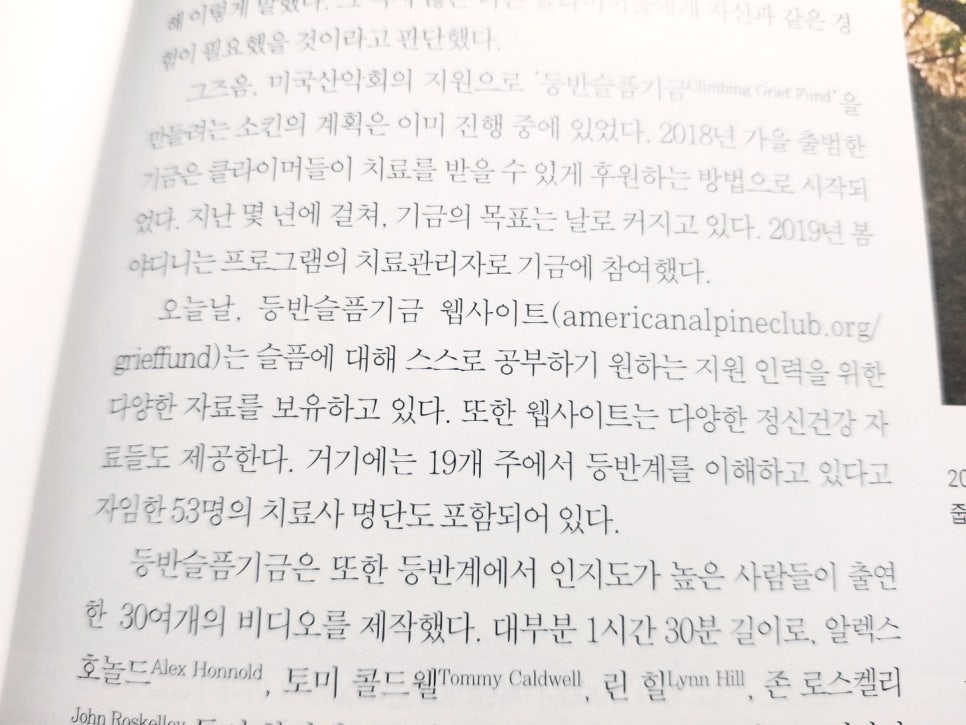 해 이렇게 말했다. 그 자신과 같은 경
험이 필요했을 것이라고 판단했다.
그즈음, 미국산악회의 지원으로 ‘등반슬픔기금Climbing Grief Fund’을
만들려는 소킨의 계획은 이미 진행 중에 있었다. 2018년 가을 출범한
기금은 클라이머들이 치료를 받을 수 있게 후원하는 방법으로 시작되
었다. 지난 몇 년에 걸쳐, 기금의 목표는 날로 커지고 있다. 2019년 봄
야디니는 프로그램의 치료관리자로 기금에 참여했다.
오늘날, 등반슬픔기금 웹사이트(americanalpineclub.org/
grieffund)는 슬픔에 대해 스스로 공부하기 원하는 지원 인력을 위한
다양한 자료를 보유하고 있다. 또한 웹사이트는 다양한 정신건강 자
료들도 제공한다. 거기에는 19개 주에서 등반계를 이해하고 있다고
자임한 53명의 치료사 명단도 포함되어 있다.
등반슬픔기금은 또한 등반계에서 인지도가 높은 사람들이 출연
한 30여개의 비디오를 제작했다. 대부분 1시간 30분 길이로, 알렉스
호놀드Alex Honnold, 토미 콜드웰Tommy Caldwell, 린 힐Lynn Hill, 존 로스켈리
John Roskelley
20
줍